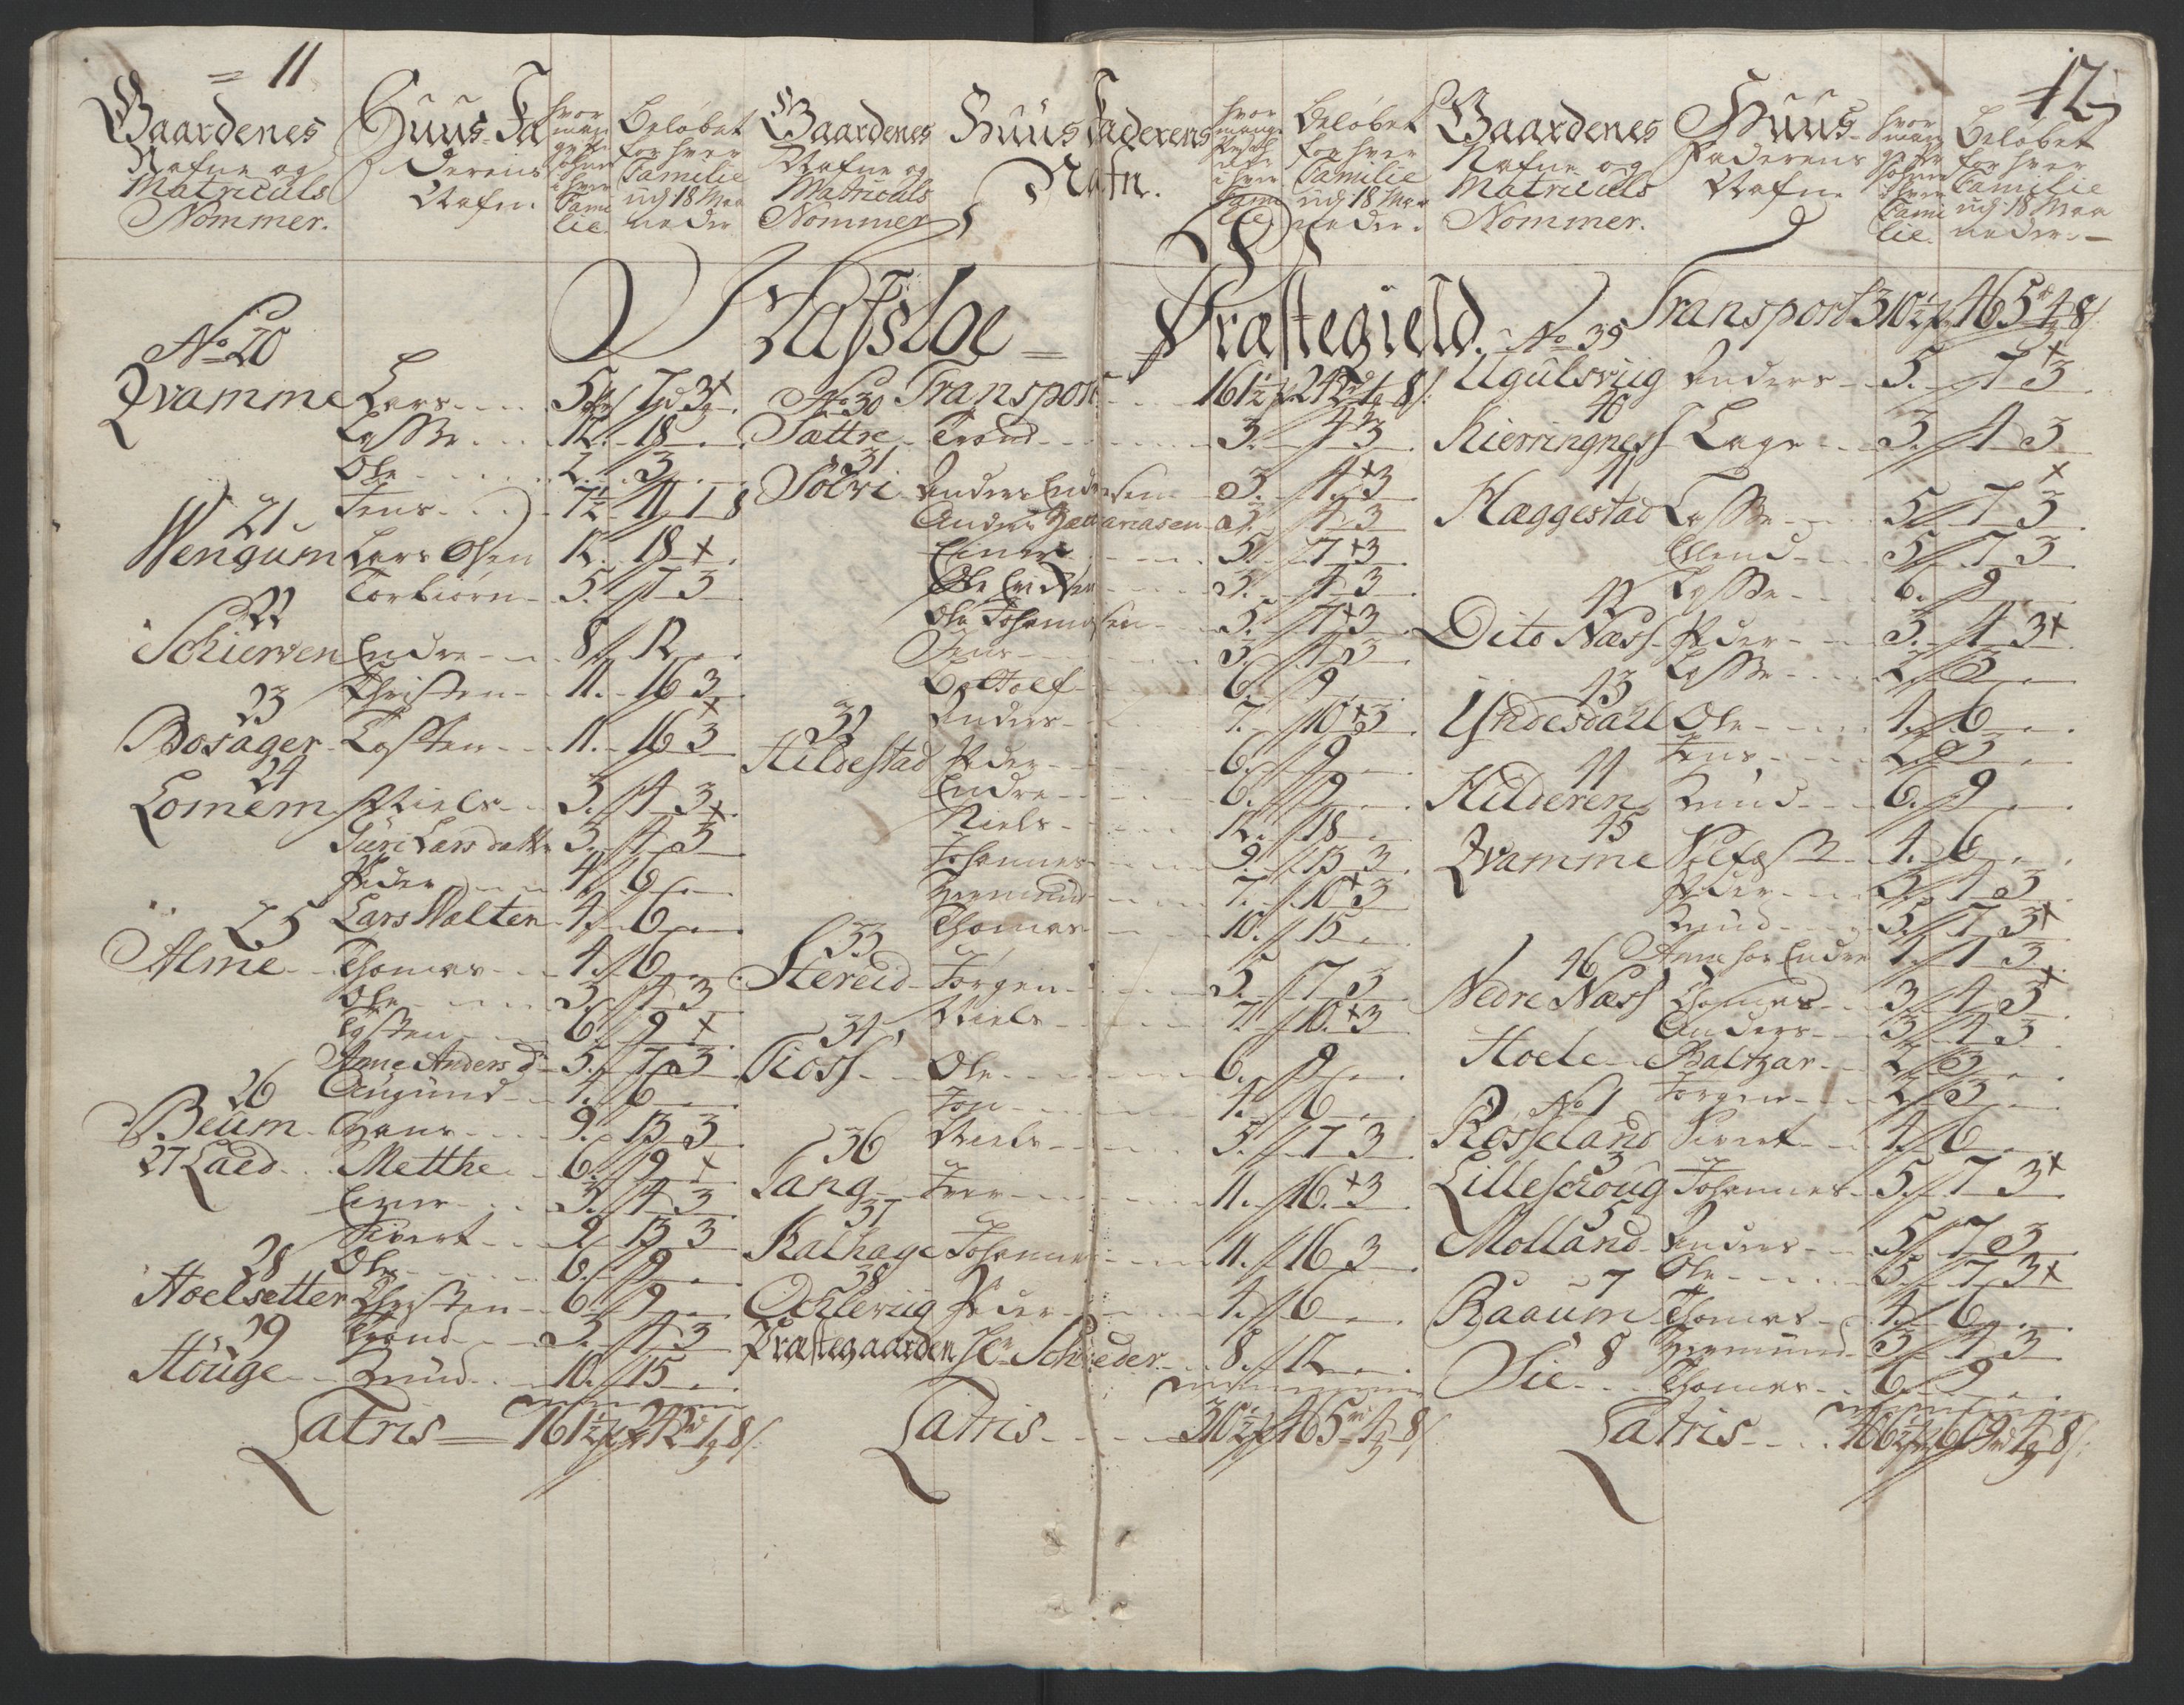 = 11
Gaardenes Nafne og Matriculs Nommer.
Huus-Faderens Nafn.
hvor mange Persohner i hver Familie.
Beløbet for hver Familie udj 18 Maaneder
Hafsloe =
No 20
Qvamme Lars 5 7 3
Lasse 12. 18
Ole 2. 3
Jens 7½ 11 1 8
21
Wengum Lars Olsen 12. 18
Torbiørn 5. 7 3
22
Schierven Endre 8 12
Christen 11. 16 3
23
Bosager Tosten 11. 16 3
24
Lomem Niels 3. 4 3
Guri Larsdatter 3. 4 3
Peder 4 6
Lars Walten 4. 6
25
Alme Thomas 4. 6
Ole 3. 4 3
Tosten 6. 9
Anne Andersd 5. 7 3
Augund 4. 6
26
Beum Hans 9. 13 3
27 Laed Metthe 6. 9
Einer 3. 4 3
Sivert 9 13 3
Ole 6. 9
28
Hoelsetter Christen 6. 9
Trond 3. 4 3
29
Houge Knud 10. 15
Latris 161½ 242 rd 1 8
Gaardenes Nafne og Matriculs Nommer
Huus Faderens Nafn.
hvor mange Persohner i hver Familie.
Beløbet for hver Familie udj 18 Maaneder.
Præstegield.
Transport 161½ 242 1 8
No 30
Sættre Trond 3. 4 3
31
Solvi Anders Endresen 3. 4 3
Anders Zachariasen 3. 4 3
Einer 5. 7 3
Ole Erichsen 3. 4 3
Ole Johannesen 5. 7 3
Jens 3. 4 3
Bottolf 6. 9
Anders 7. 10 3
32
Hildestad Peder 6. 9
Endre 6. 9
Niels 12. 18
Johannes 9. 13 3
Hermund 7. 10 3
Thomas 10. 15
33
Stereid Jørgen 5. 7 3
Niels 7. 10 3
34
Kross Ole 6. 9
Jon 4. 6
Niels 5. 7 3
36
Tang Iver 11. 16 3
37
Kalhage Johannes 11. 16 3
38
Ochlevig Peder 4. 6
Præstegaarden Hr Schrøder 8. 12
Latris 310½ 465 rd 4 8
12
Gaardenes Nafne og Matriculs Nommer.
Huus-Faderens Nafn
hvor mange Persohner i hver Familie.
Beløbet for hver Familie udj 18 Maaneder
Transport 310½ 465 4 8
No 39
Ugulsvig Anders 5. 7 3
40
Kierringness Lage 3. 4 3
41
Hæggestad Lasse 5 7 3
Erlend 5 7 3
Lasse 6. 9
42
Dito Næss Peder 3. 4 3
Lasse 2. 3
43
Yndesdall Ole 4. 6
Jens 2. 3
44
Hilderen Knud 6. 9
45
Qvamme Silfast 4. 6
Peder 3. 4 3
Knud 5 7 3
Anne hos Endre 1. 1 3
46
Nedre Næss Thomas 3 4 3
Anders 3 4 3
Hoele Baltzar 2 3
Jørgen 2 3
No 1
Røsseland Sivert 4. 6
3
Lilleschoug Johannes 5. 7 3
5
Molland Anders 5 7 3
Ole 5. 7 3
7
Raaum Thomas 4. 6
Hermund 3. 4 3
8
Sie Thomas 6. 9
Latris 406½ 609 rd 4 8